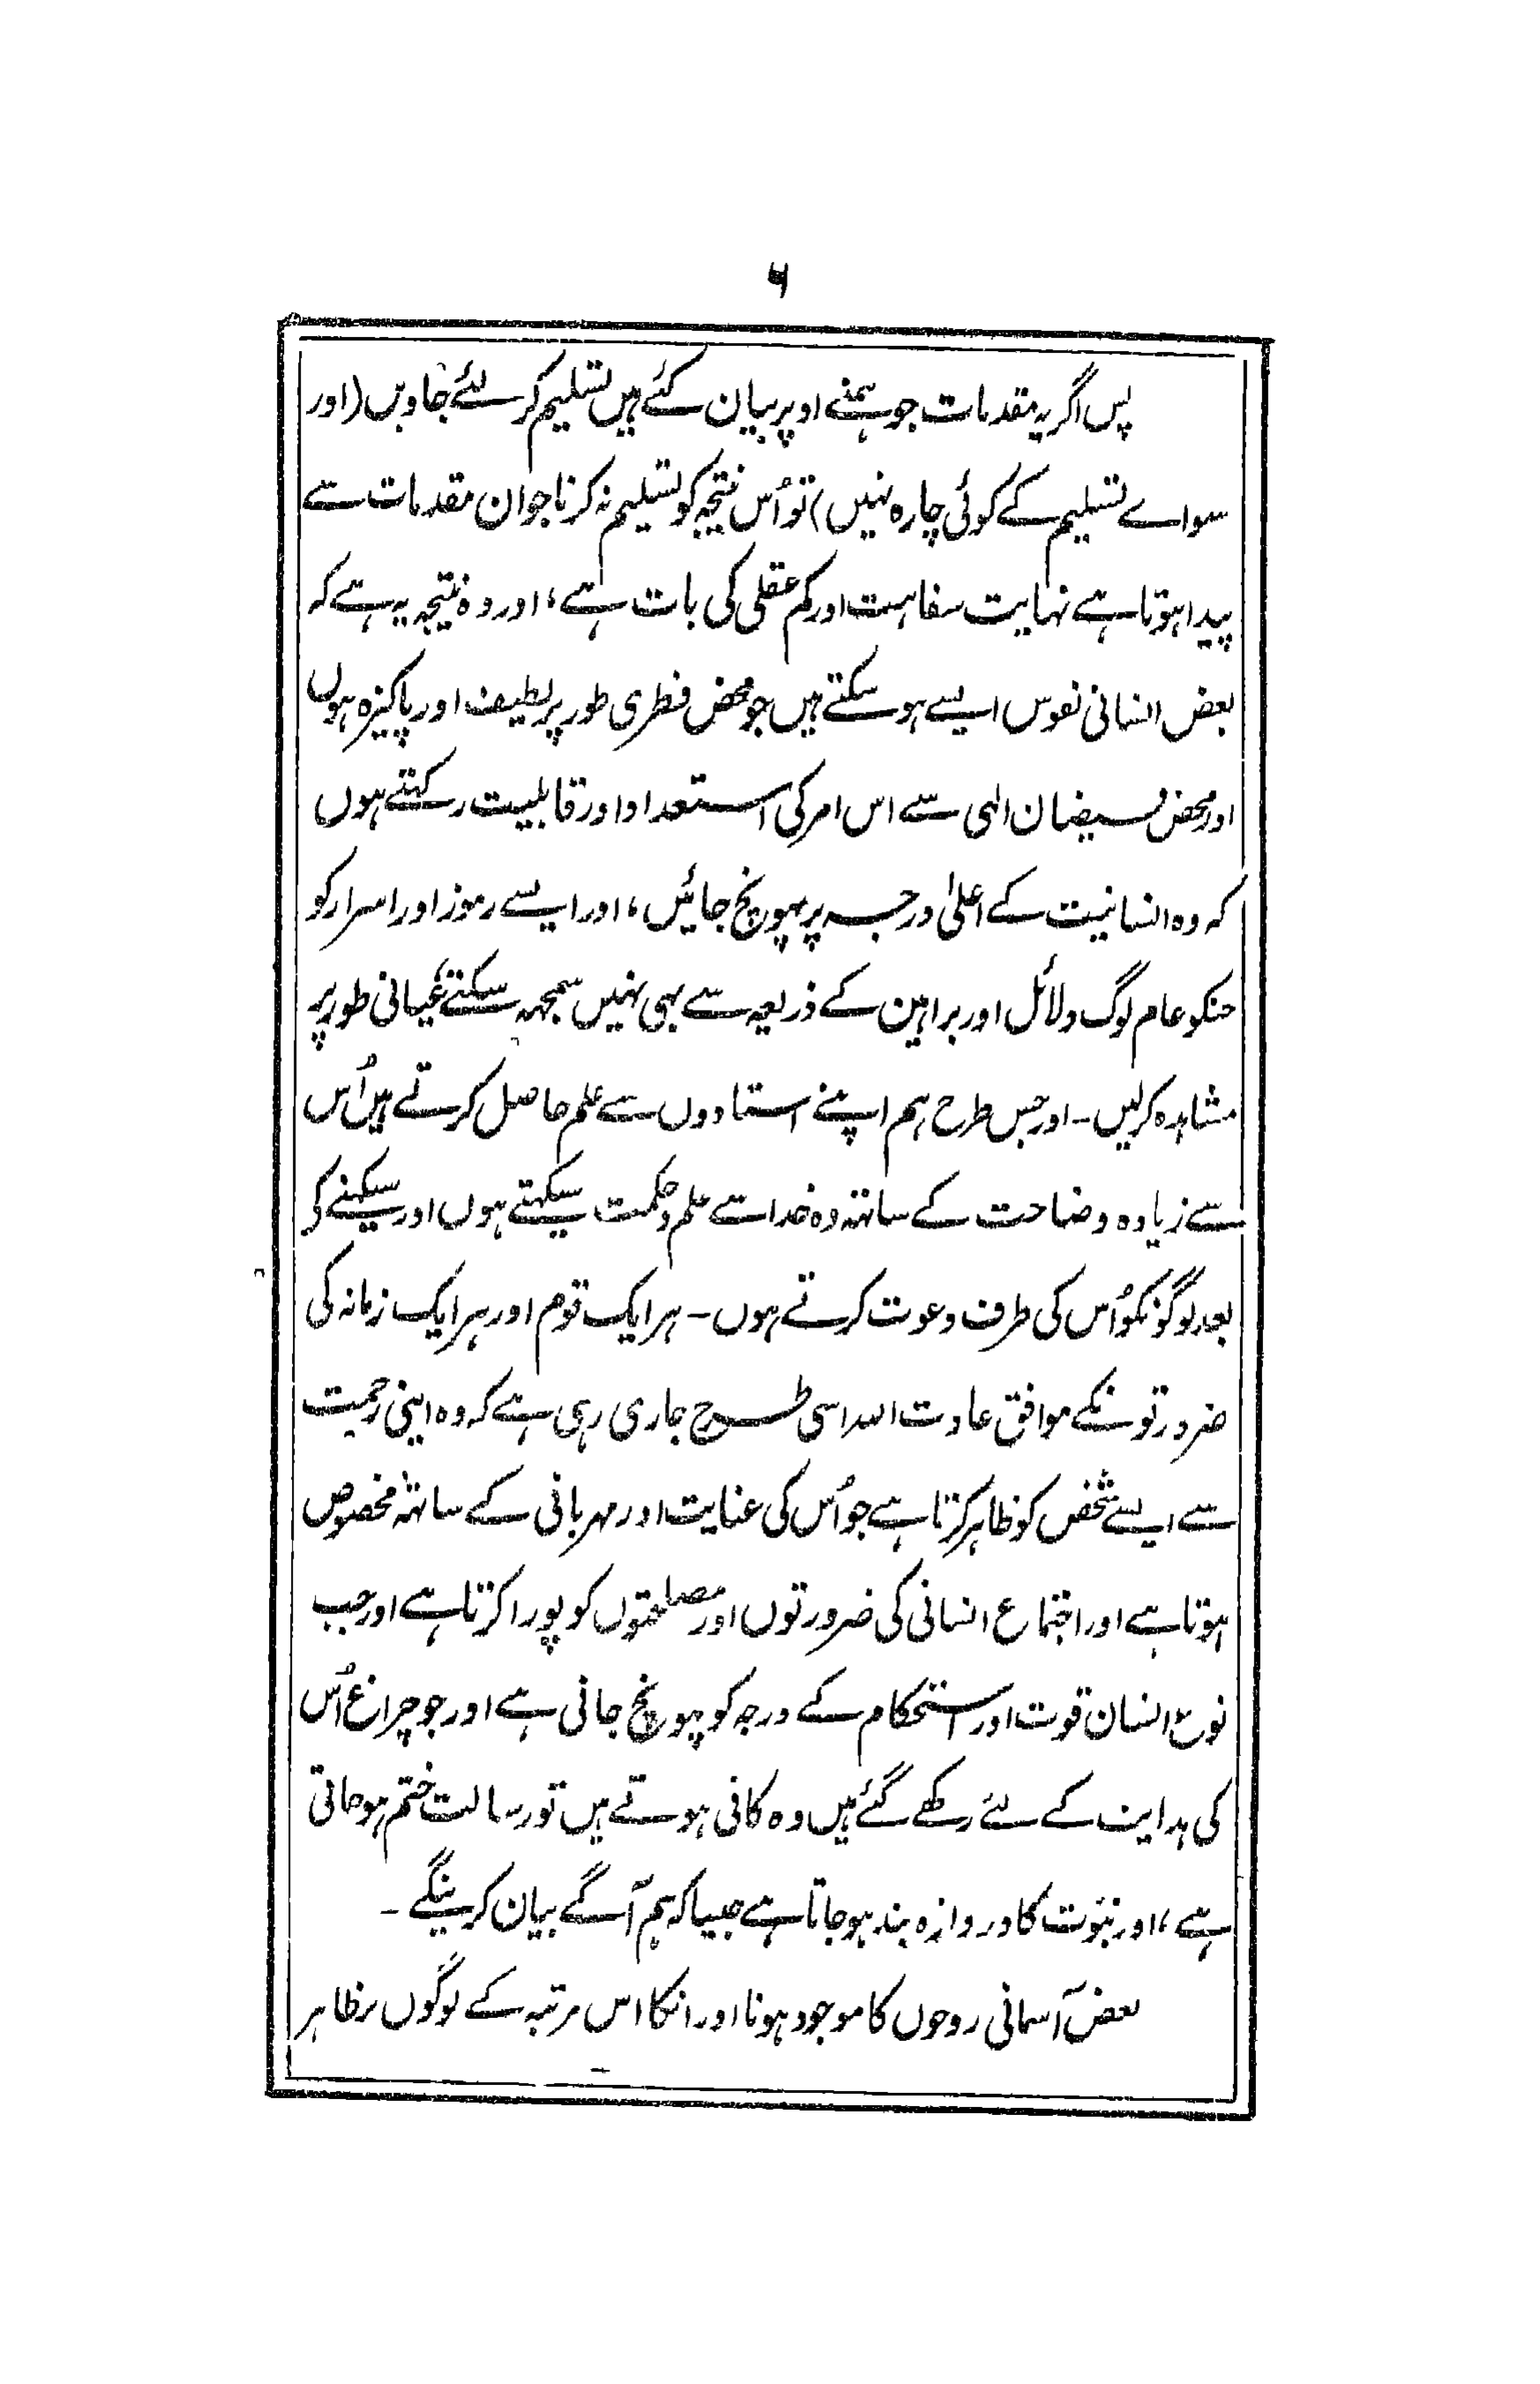 ۶
پس اگر یہ مقدمات جو ہمنے اوپر بیان کئے ہیں تسلیم کر لئے جاویں (اور
سواے تسلیم کے کوئی چارہ نہیں) تو اُس نتیجہ کو تسلیم نہ کرنا جو ان مقدمات سے
پیدا ہوتا ہے نہایت سفاہت اور کم عقلی کی بات ہے، اور وہ نتیجہ یہ ہے کہ
بعض انسانی نفوس ایسے ہو سکتے ہیں جو محض فطری طور پر لطیف اور پاکیزہ ہوں
اور محض فیضان الٰہی سے اس امر کی استعداد اور قابلیت رکہتے ہوں
کہ وہ انسانیت کے اعلیٰ درجہ پر پہونچ جائیں، اور ایسے رموز اور اسرار کو
جنکو عام لوگ دلائل اور براہین کے ذریعہ سے بہی نہیں سمجہہ سکتے عیانی طور پر
مشاہدہ کرلیں۔ اور جس طرح ہم اپنے استادوں سے علم حاصل کرتے ہیں اُس
سے زیادہ وضاحت کے ساتہہ وہ خدا سے علم و حکمت سیکہتے ہوں اور سیکہنے کے
بعد لوگونکو اُس کی طرف دعوت کرتے ہوں۔ ہر ایک قوم اور ہر ایک زمانہ کی
ضرورتونکے موافق عادت اللہ اسی طرح جاری رہی ہے کہ وہ اپنی رحمت
سے ایسے شخص کو ظاہر کرتا ہے جو اُس کی عنایت اور مہربانی کے ساتہہ مخصوص
ہوتا ہے اور اجتماع انسانی کی ضرورتوں اور مصلحتوں کو پورا کرتا ہے اور جب
نوع انسان قوت اور استحکام کے درجہ کو پہونچ جاتی ہے اور جو چراغ اُس
کی ہدایت کے لئے رکھے گئے ہیں وہ کافی ہوتے ہیں تو رسالت ختم ہو جاتی
ہے، اور نبوّت کا دروازہ بند ہو جاتا ہے جیسا کہ ہم آگے بیان کرینگے۔
بعض آسمانی روحوں کا موجود ہونا اور انکا اس مرتبہ کے لوگوں پر ظاہر